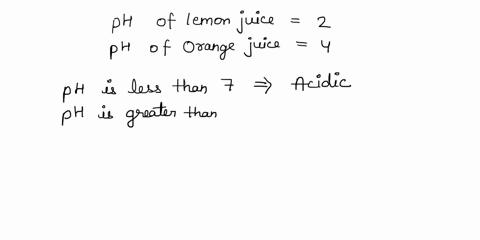 pH of lemon juice = 2
pH of Orange juice = 4
pH is less than 7 ⇒ Acidic
pH is greater than